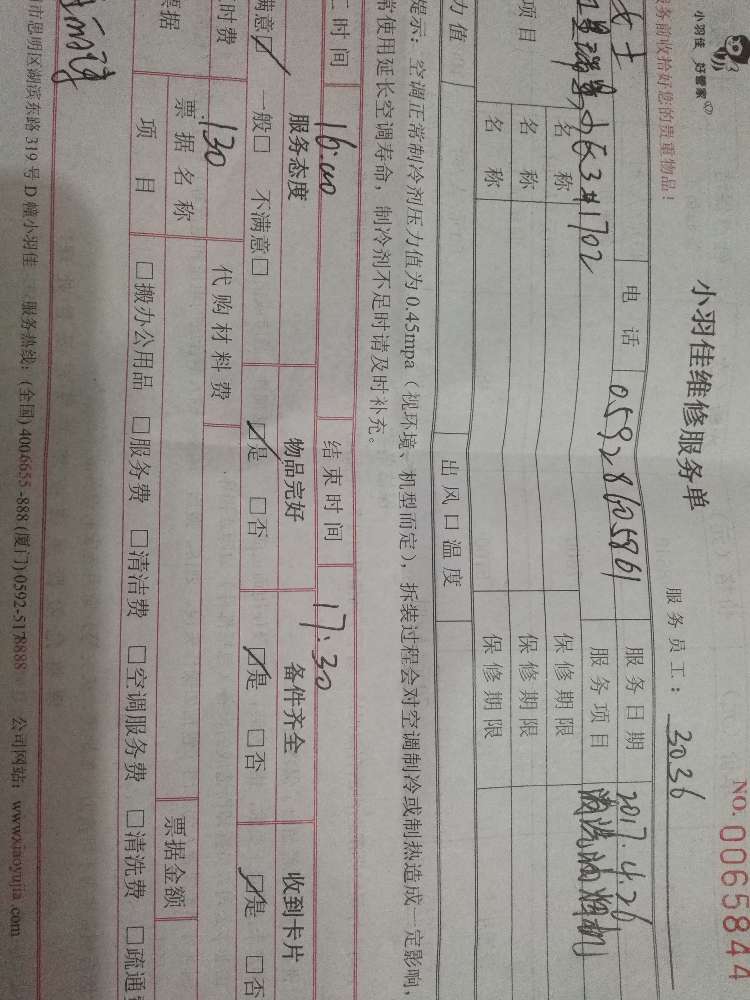 小羽佳 好管家
服务前收拾好您的贵重物品!
小羽佳维修服务单
NO. 0065844
服务员工: 3036
女士 电话 05928605861 服务日期 2017.4.26
63#1702 服务项目 清洗油烟机
项目 名称 保修期限
名称 保修期限
名称 保修期限
力值 出风口温度
提示:空调正常制冷剂压力值为0.45mpa(视环境、机型而定),拆装过程会对空调制冷或制热造成一定影响,
常使用延长空调寿命,制冷剂不足时请及时补充。
时间 16:00 结束时间 17:30
服务态度 物品完好 备件齐全 收到卡片
满意☑ 一般□ 不满意□ ☑是 □否 ☑是 □否 ☑是 □否
时费 130 代购材料费
票据 票据名称 票据金额
项目 □搬办公用品 □服务费 □清洁费 □空调服务费 □清洗费 □疏通
市思明区湖滨东路319号D幢小羽佳 服务热线:(全国)4006655-888(厦门)0592-5178888 公司网站:www.xiaoyujia.com